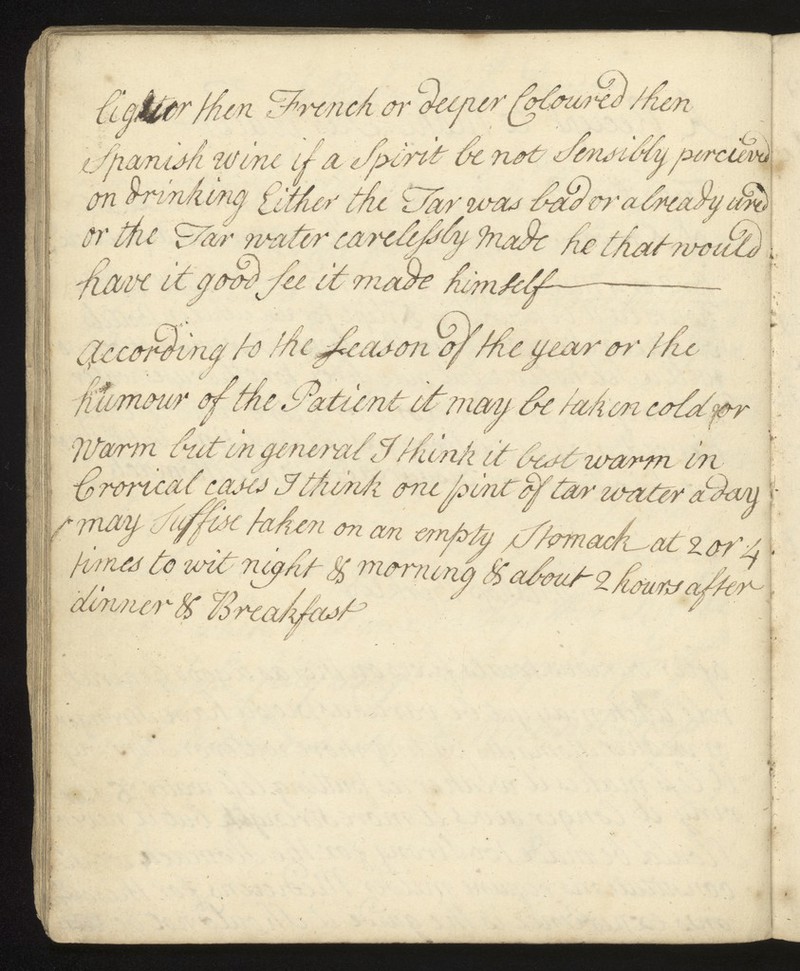 lighter then French or deeper Coloured then
Spanish wine if a Spirit be not Sensibly percieved
on drinking Either the Tar was bad or already used
or the Tar water carelessly made he that would
have it good see it made himself
According to the season of the year or the
humour of the Patient it may be taken cold or
Warm but in general I think it best warm in
Crorical cases I think one pint of tar water a day
may Suffise taken on an empty Stomach at 2 or 4
times to wit night & morning & about 2 hours after
dinner & Breakfast